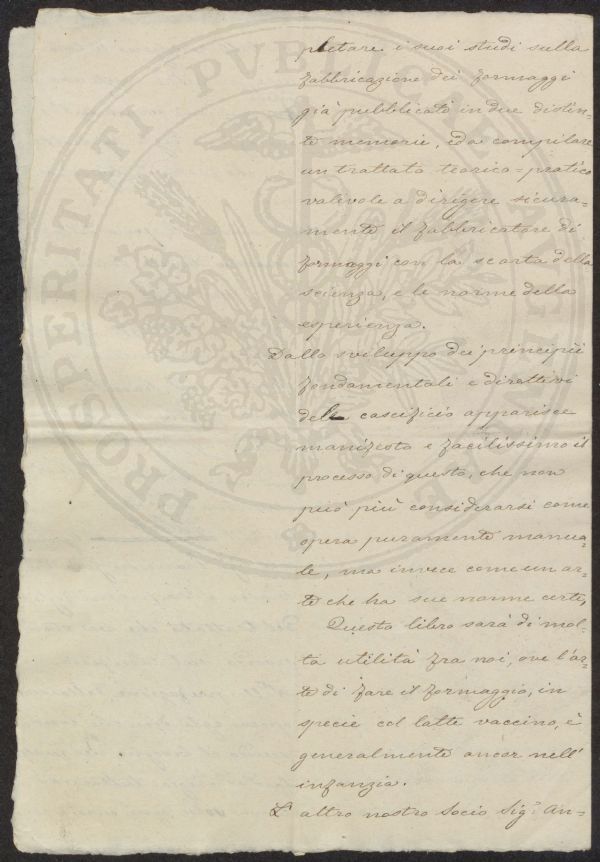 pletare i suoi studi sulla
fabbricazione dei formaggi
già pubblicati in due distin-
te memorie, e da compilare
un trattato teorico-pratico
valevole a dirigere sicura-
mente il fabbricatore di
formaggi con la scorta della
scienza, e le norme della
esperienza.
Dallo sviluppo dei principii
fondamentali e direttivi
del caseificio apparisce
manifesto e facilissimo il
processo di questo, che non
può più considerarsi come
opera puramente manua-
le, ma invece come un ar-
te che ha sue norme certe,
Questo libro sarà di mol-
ta utilità fra noi, ove l'ar-
te di fare il formaggio, in
specie col latte vaccino, è
generalmente ancor nell'
infanzia.
L'altro nostro socio Sig.r An-
PROSPERITATI PVBLICAE AVGENDAE